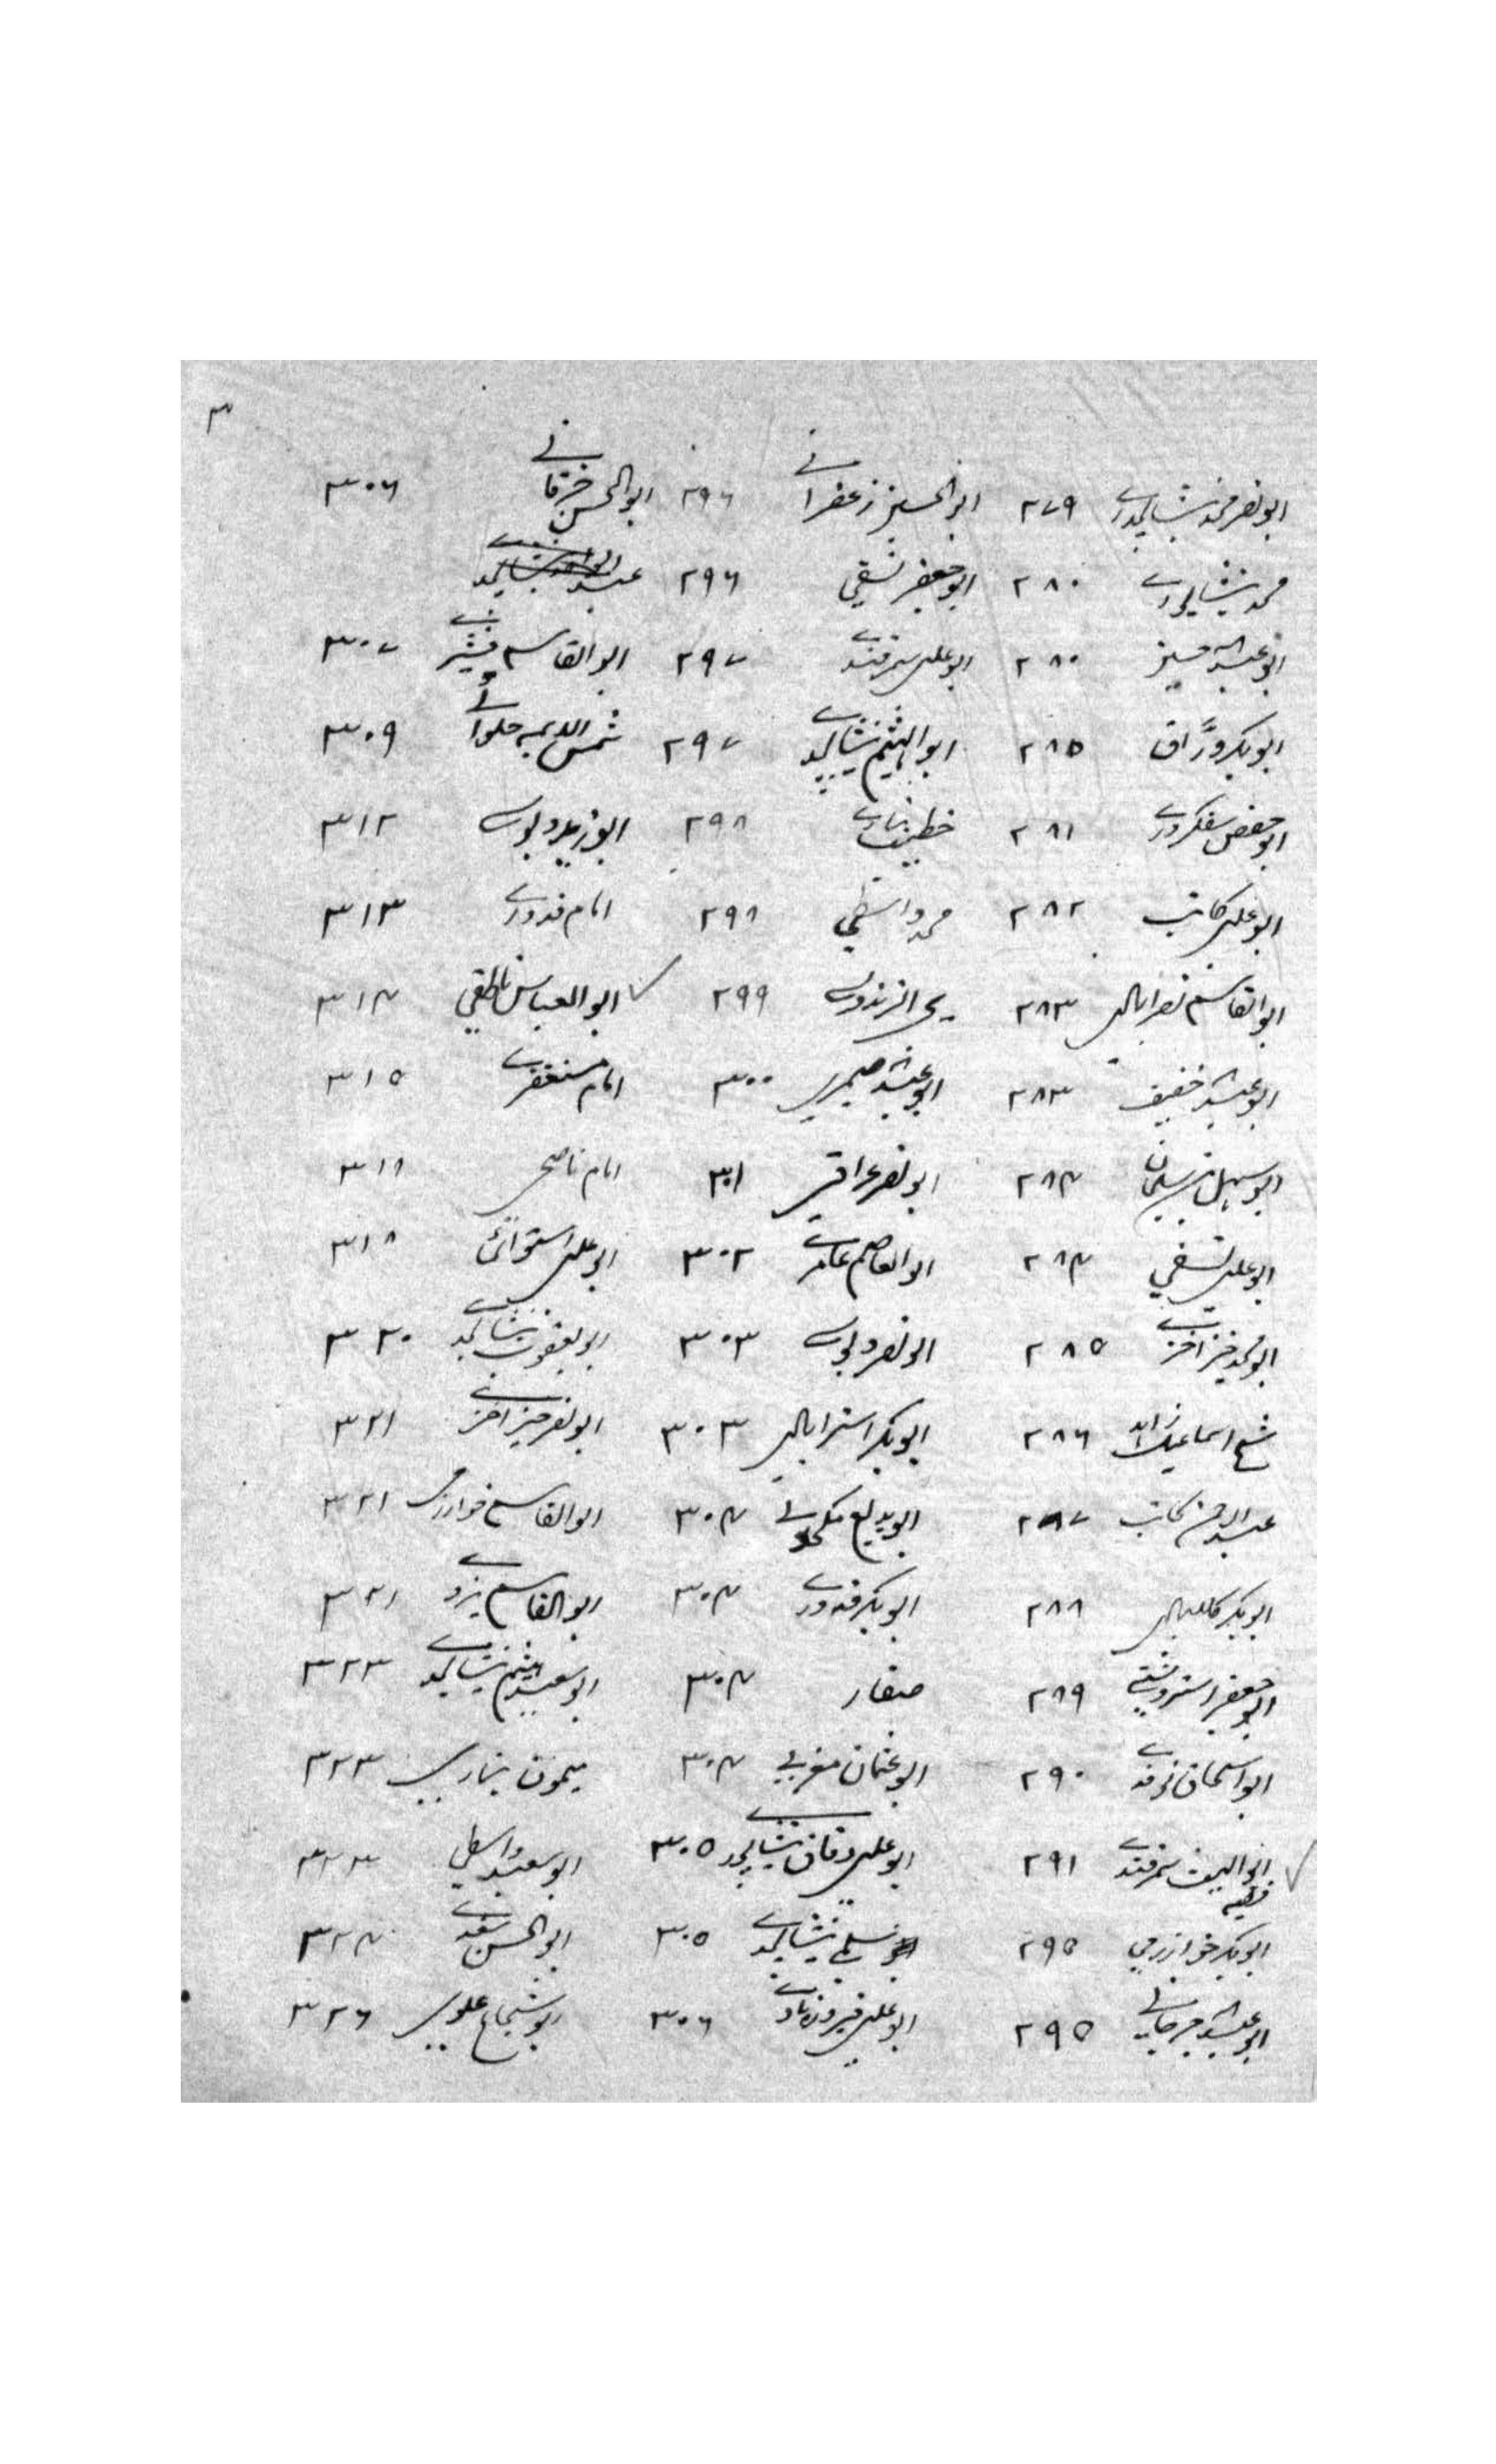 ۳
ابونصر محمد نیشاپوری ۲۷۹ ابوالحسین زعفرانی ۲۹۶ ابوالحسن خرقانی ۳۰۶
محمد نیشاپوری ۲۸۰ ابوجعفر نسفی ۲۹۶
ابو عبداللہ ۲۸۰ ابوعلی سمرقندی ۲۹۷ ابوالقاسم قشیری ۳۰۷
ابوبکر ورّاق ۲۸۵ ابوالہیثم نیشاپوری ۲۹۷ شمس الدین حلوائی ۳۰۹
ابوحفص سفکردری ۲۸۱ خطیب ۲۹۸ ابوزید دبوسی ۳۱۲
ابوعلی کاتب ۲۸۲ محمد واسطی ۲۹۸ امام قدوری ۳۱۳
ابوالقاسم نصرابادی ۲۸۳ یحی الزندوی ۲۹۹ ابوالعباس ناطفی ۳۱۴
ابوعبداللہ خفیف ۲۸۳ ابوعبداللہ صیمری ۳۰۰ امام مستغفری ۳۱۵
ابوسہل بن سلیمان ۲۸۴ ابونصر عراقی ۳۰۱ امام ناصحی ۳۱۸
ابوعلی نسفی ۲۸۴ ابوالعاصم عامری ۳۰۲ ابوعلی استوائی ۳۱۸
ابومحمد خیزاخزی ۲۸۵ ابونصر دبوسی ۳۰۳ ابویعقوب نیشاپوری ۳۲۰
شیخ اسماعیل زاہد ۲۸۶ ابوبکر استرابادی ۳۰۳ ابونصر خیزاخزی ۳۲۱
عبدالرحمن کاتب ۲۸۷ ابوبدیع ۳۰۴ ابوالقاسم خوارزمی ۳۲۱
ابوبکر کلابادی ۲۸۸ ابوبکر قدوری ۳۰۴ ابوالقاسم یزدی ۳۲۱
ابوجعفر استروشنی ۲۸۹ صفار ۳۰۴ ابوسعید ہیثم نیشاپوری ۳۲۳
ابواسحاق نوقدی ۲۹۰ ابوعثمان مغربی ۳۰۴ میمون بخاری ۳۲۳
ابواللیث سمرقندی فقیہ ۲۹۱ ابوعلی دقاق نیشاپوری ۳۰۵ ابوسعید واسطی ۳۲۳
ابوبکر خوارزمی ۲۹۵ سلمی نیشاپوری ۳۰۵ ابوالحسن سغدی ۳۲۴
ابوعبداللہ جرجانی ۲۹۵ ابوعلی فیروزابادی ۳۰۶ ابوشجاع علوی ۳۲۶